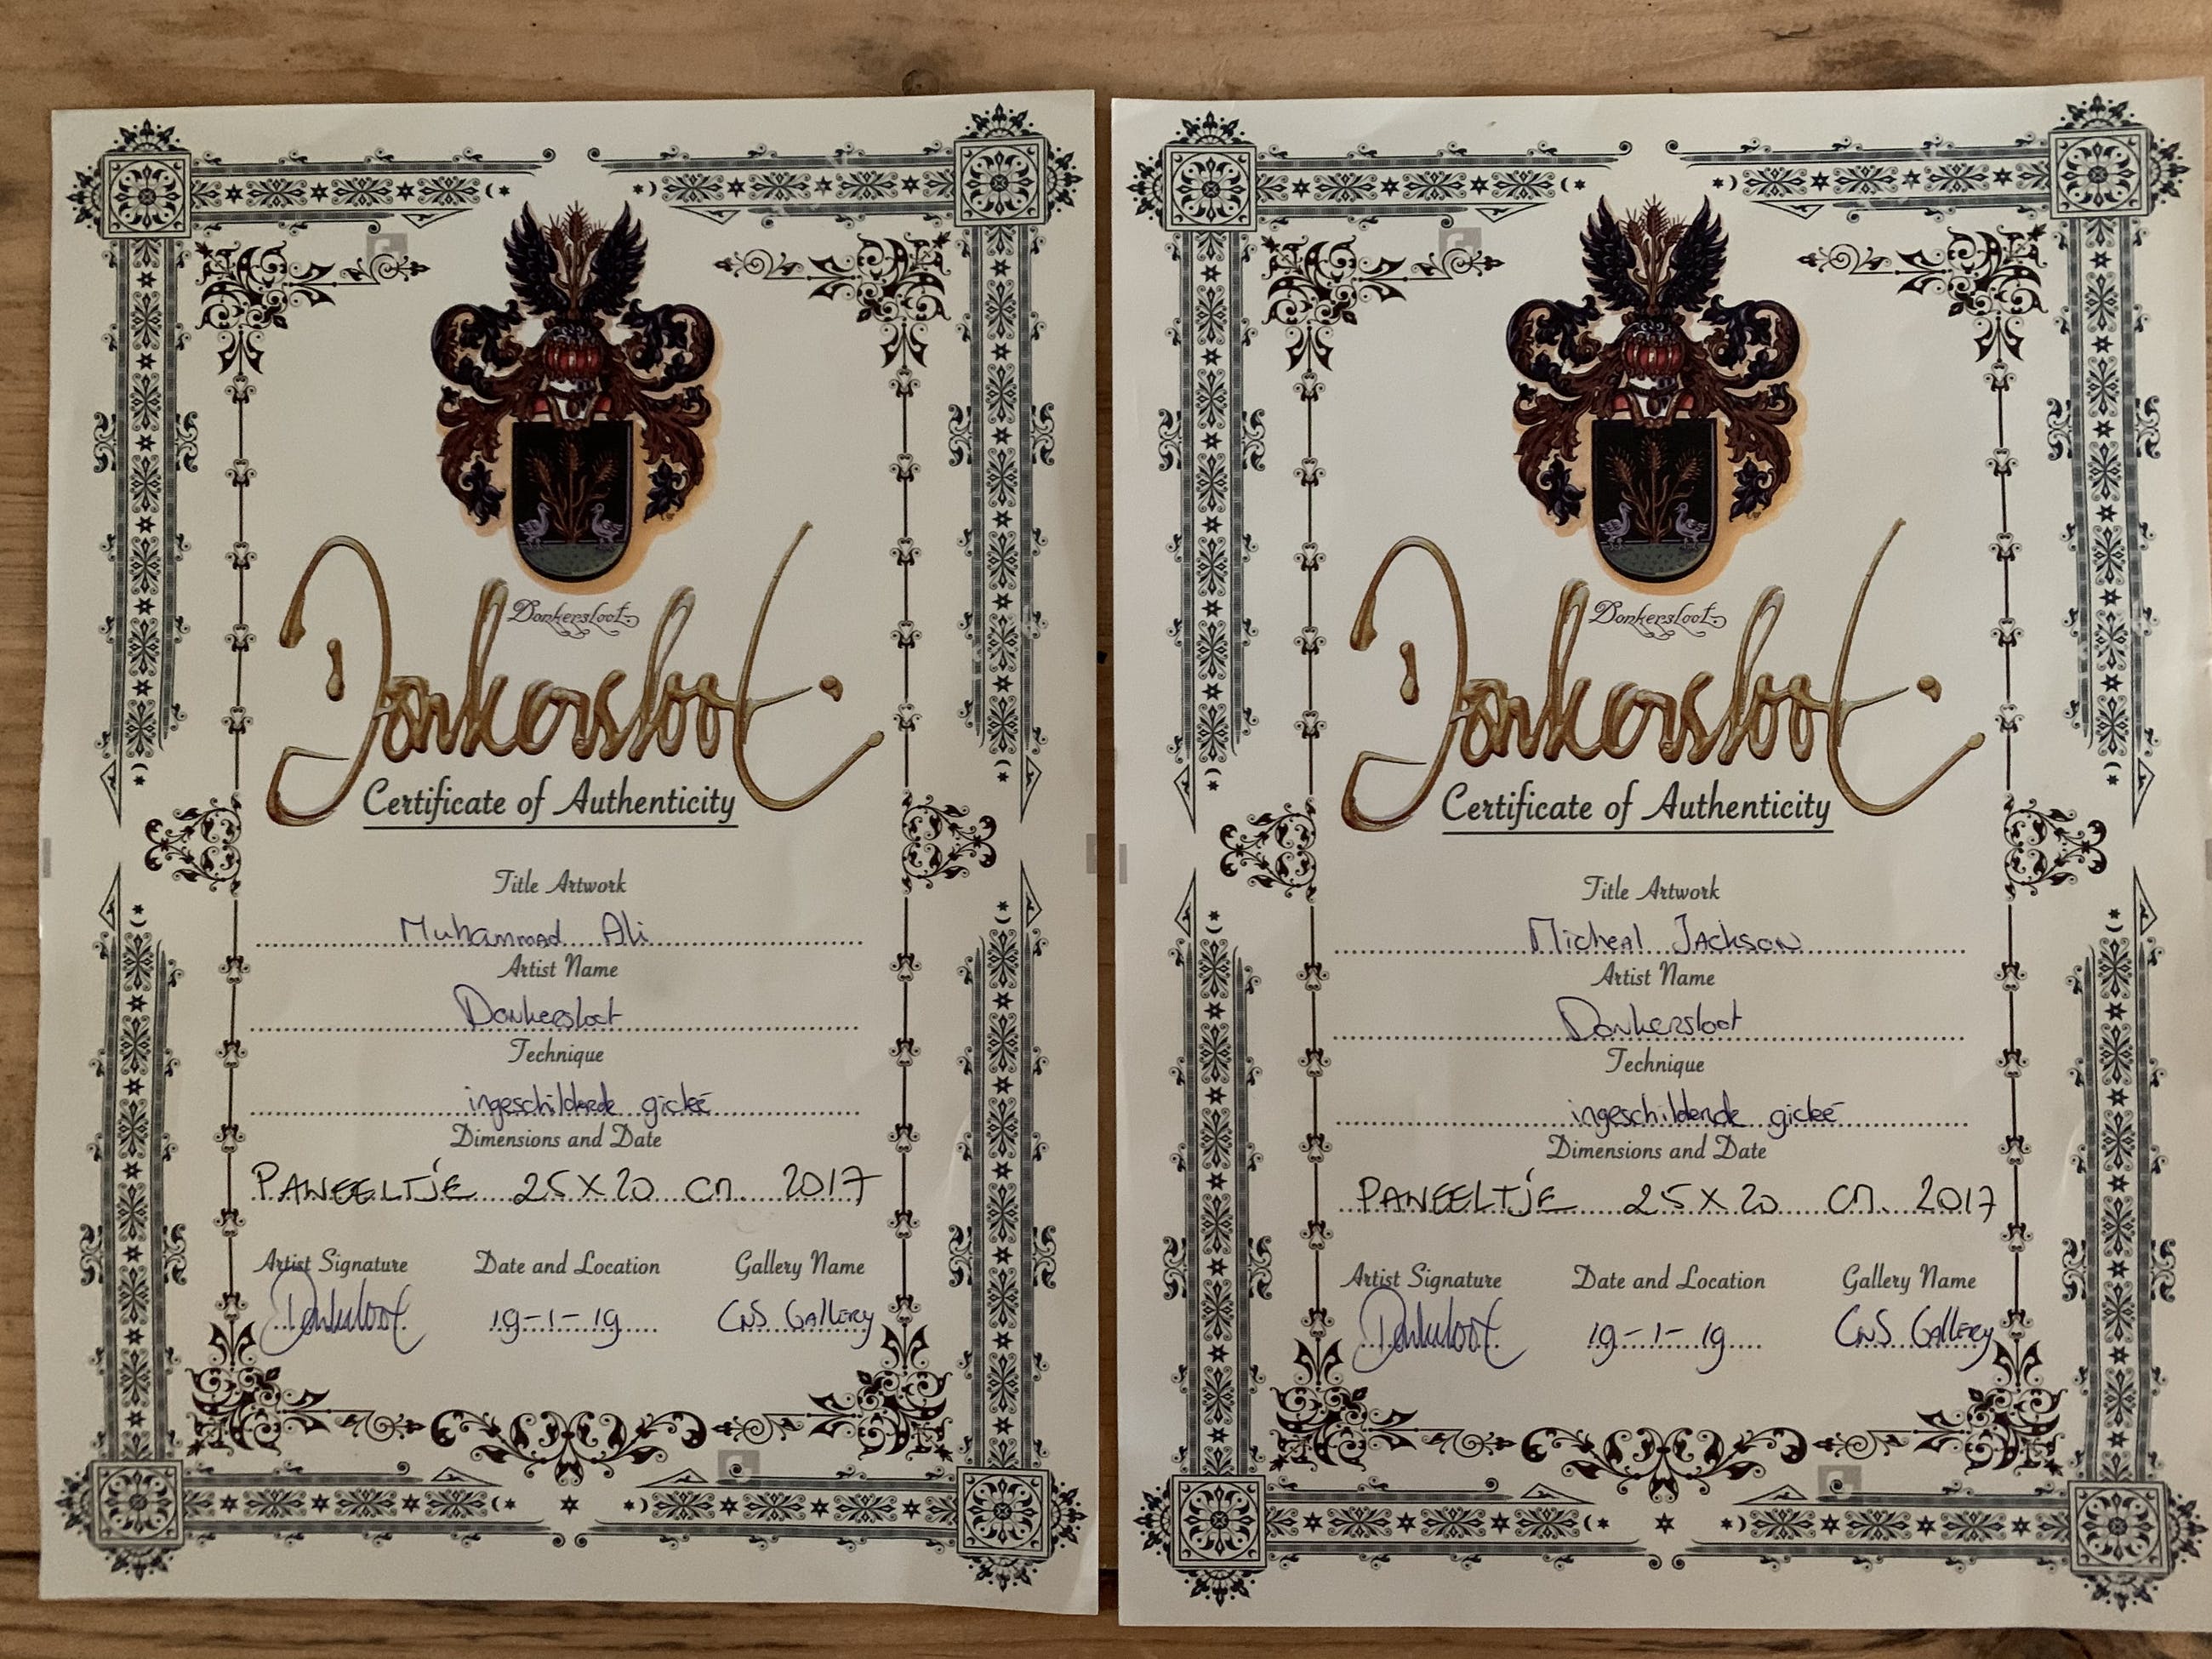 Donkersloot
Donkersloot
Certificate of Authenticity
Title Artwork
Muhammad Ali
Artist Name
Donkersloot
Technique
ingeschilderde gicleé
Dimensions and Date
PANEELTJE 25 X 20 cm. 2017
Artist Signature Date and Location Gallery Name
Donkersloot 19-1-19 CNS Gallery
Donkersloot
Donkersloot
Certificate of Authenticity
Title Artwork
Micheal Jackson
Artist Name
Donkersloot
Technique
ingeschilderde gicleé
Dimensions and Date
PANEELTJE 25 X 20 cm. 2017
Artist Signature Date and Location Gallery Name
Donkersloot 19-1-19 CNS Gallery